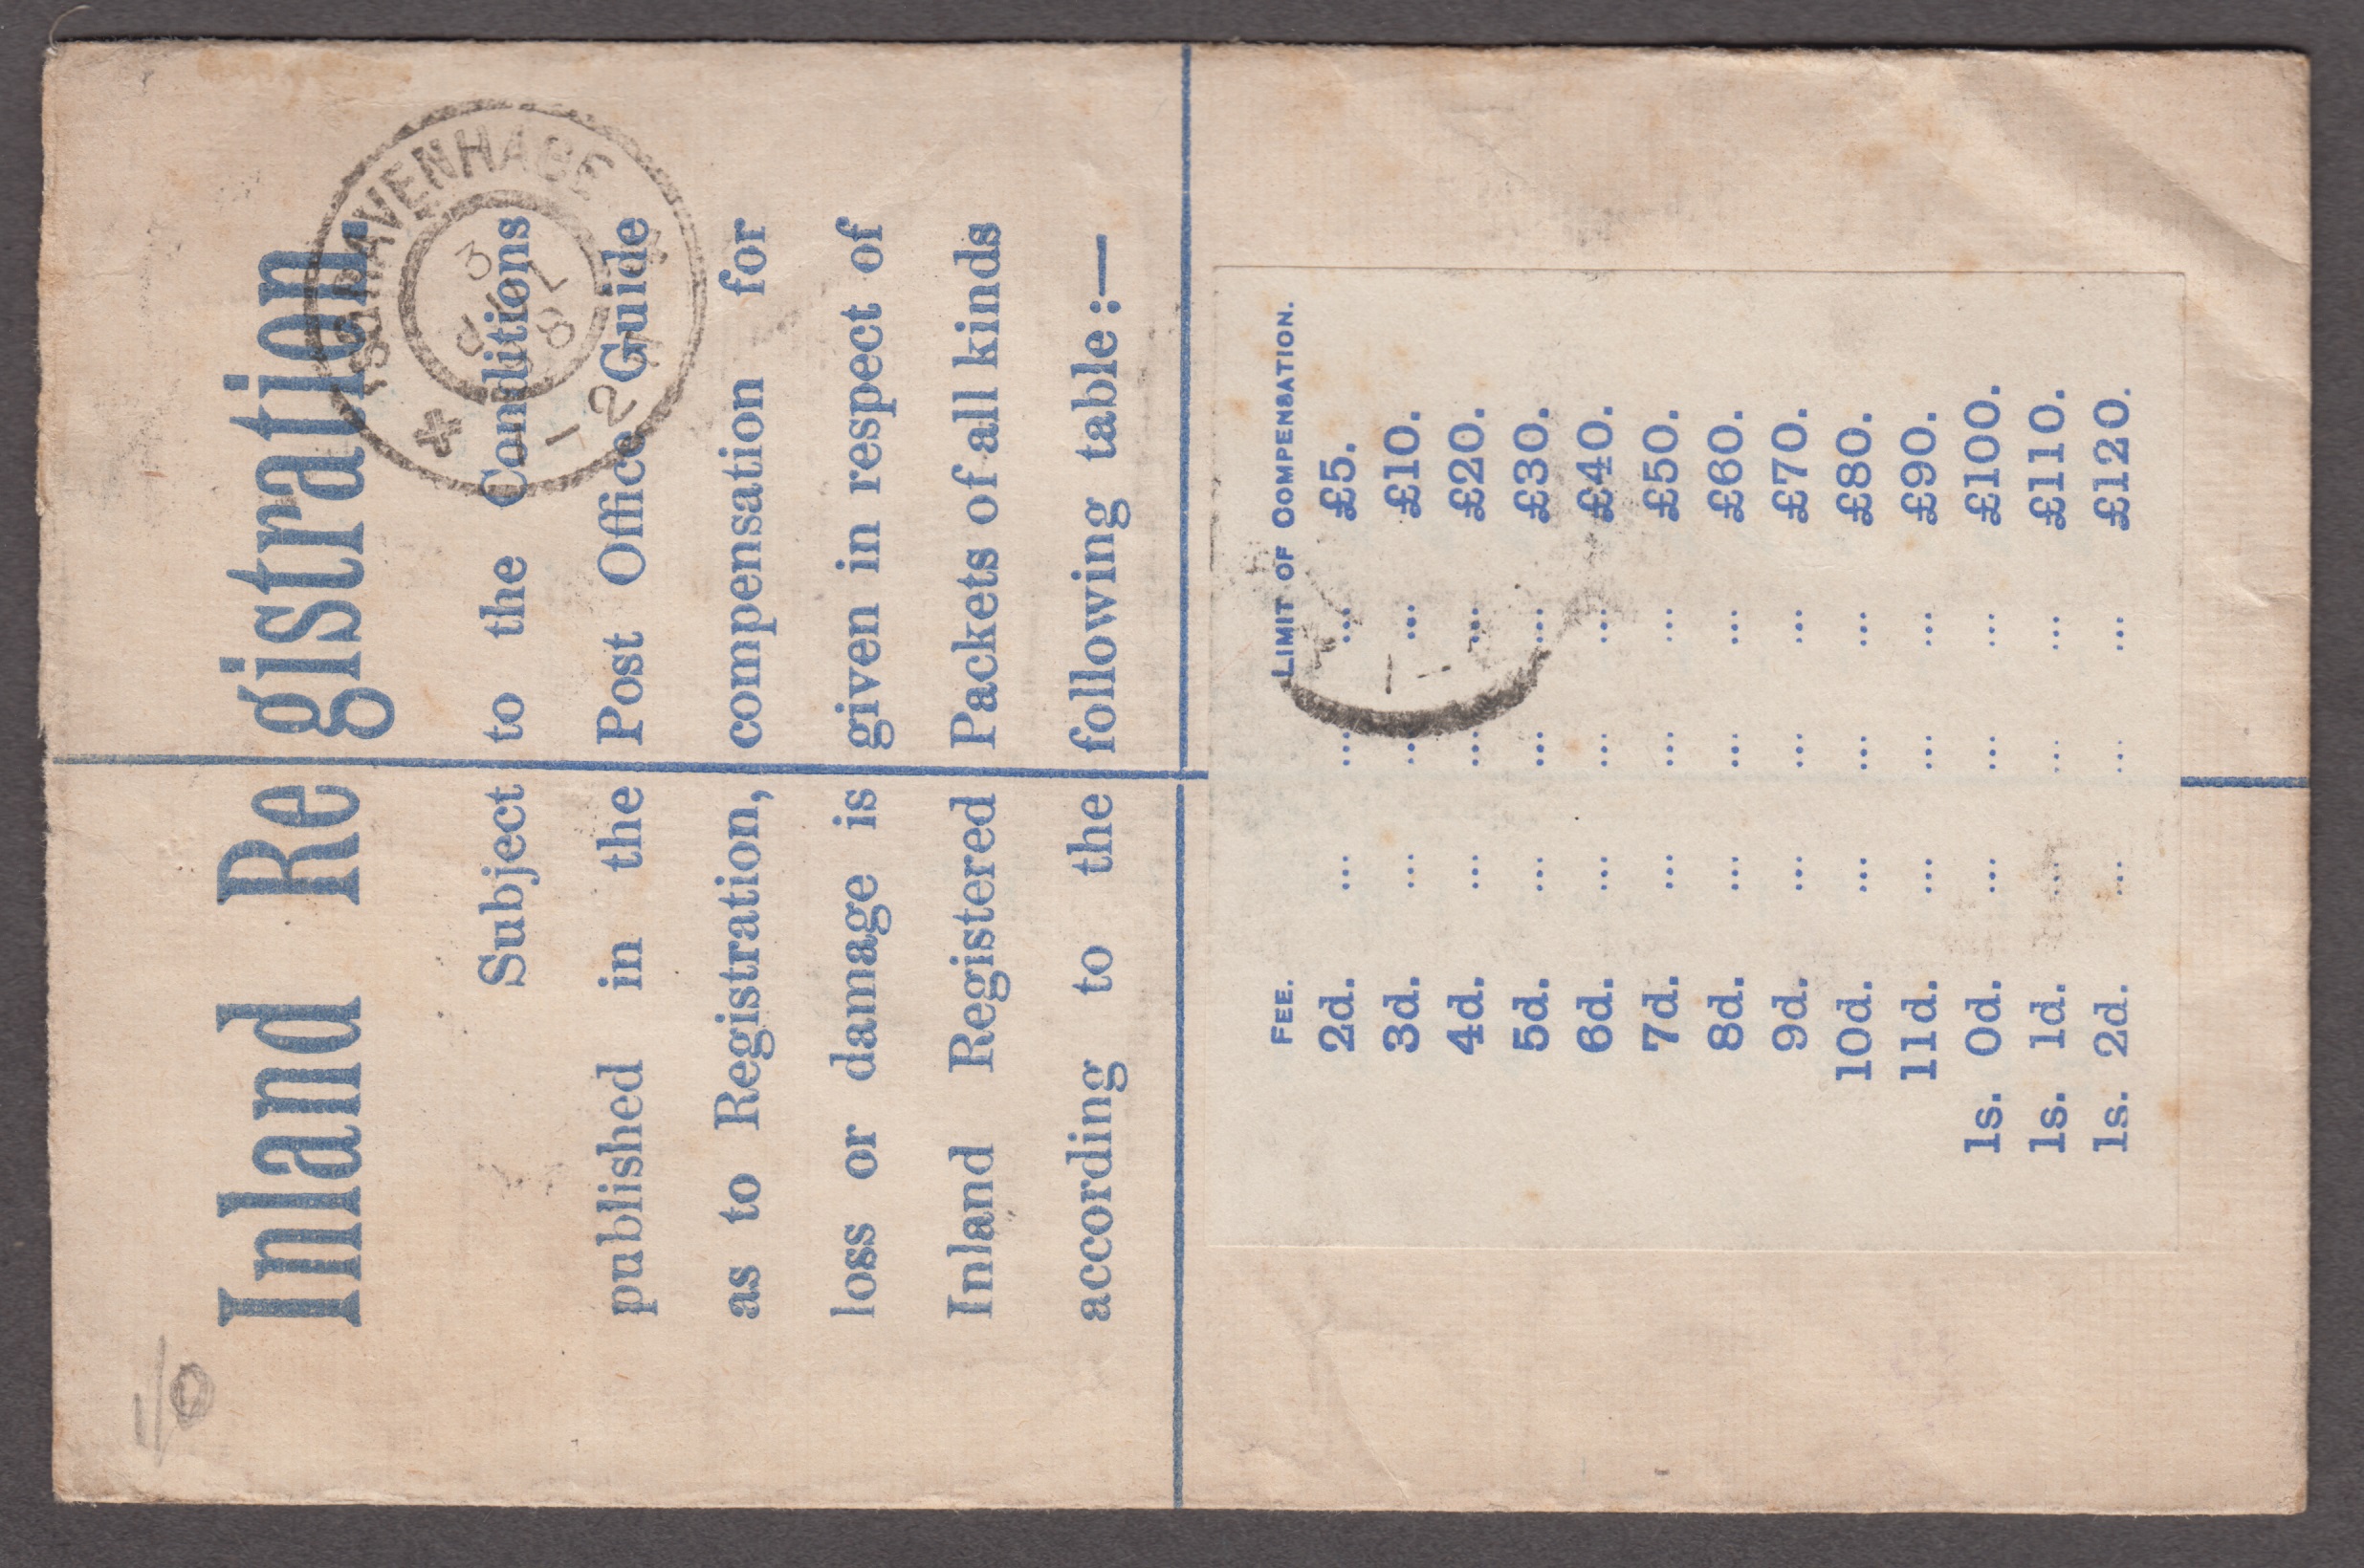 Inland Registration.
Subject to the Conditions
published in the Post Office Guide
as to Registration, compensation for
loss or damage is given in respect of
Inland Registered Packets of all kinds
according to the following table:—
FEE. LIMIT OF COMPENSATION.
2d. ... ... ... £5.
3d. ... ... ... £10.
4d. ... ... ... £20.
5d. ... ... ... £30.
6d. ... ... ... £40.
7d. ... ... ... £50.
8d. ... ... ... £60.
9d. ... ... ... £70.
10d. ... ... ... £80.
11d. ... ... ... £90.
1s. 0d. ... ... ... £100.
1s. 1d. ... ... ... £110.
1s. 2d. ... ... ... £120.
'SGRAVENHAGE
3
8
1/0